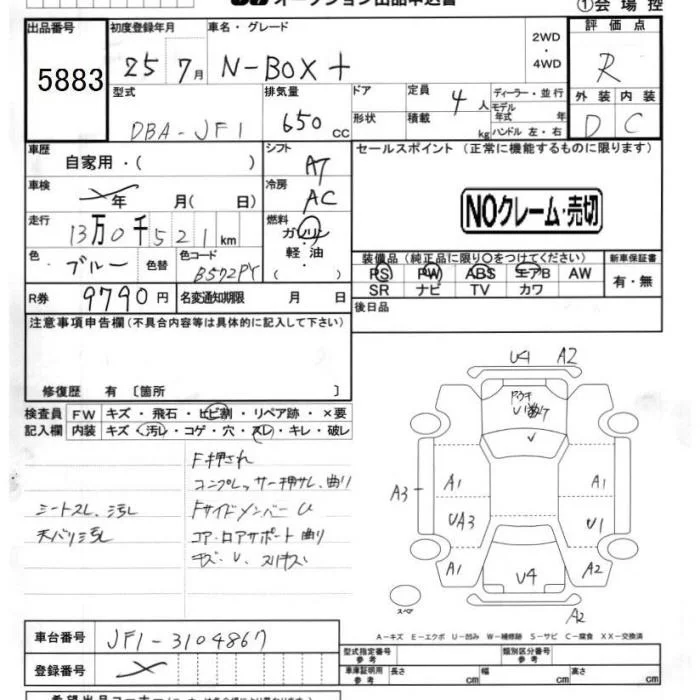 オークション出品申込書
①会場控
出品番号 初度登録年月 車名・グレード 2WD・4WD 評価点
5883 25 7月 N-BOX+ R
型式 排気量 ドア 定員 4人 ディーラー・並行 外装 内装
DBA-JF1 650cc 形状 積載 kg モデル年式 年 D C
ハンドル 左・右
車歴 自家用・( ) シフト AT セールスポイント (正常に機能するものに限ります)
車検 年 月( 日) 冷房 AC
NOクレーム・売切
走行 13万0千521km 燃料 ガソリン 軽油 ( )
色 ブルー 色替 色コード B572PY
装備品(純正品に限り○をつけてください) 新車保証書
PS PW ABS エアB AW 有・無
SR ナビ TV カワ
R券 9790円 名変通知期限 月 日 後日品
注意事項申告欄(不具合内容等は具体的に記入して下さい)
修復歴 有〔箇所 〕
検査員 FW キズ・飛石・ヒビ割・リペア跡・×要
記入欄 内装 キズ・汚レ・コゲ・穴・スレ・キレ・破レ
F押され
コンプレッサー押サレ、曲り
シートスレ、汚レ Fサイドメンバー U
天バリ汚レ コア・ロアサポート曲り
キズ・U、スリキズ
U4 A2
U割レ
A3 A1 A1
UA3 U1
A1 U4 A2
スペア
A2
A-キズ E-エクボ U-凹み W-補修跡 S-サビ C-腐食 XX-交換済
車台番号 JF1-3104867
型式指定番号 参考 類別区分番号 参考
登録番号
車庫証明用 参考 長さ cm 幅 cm 高さ cm